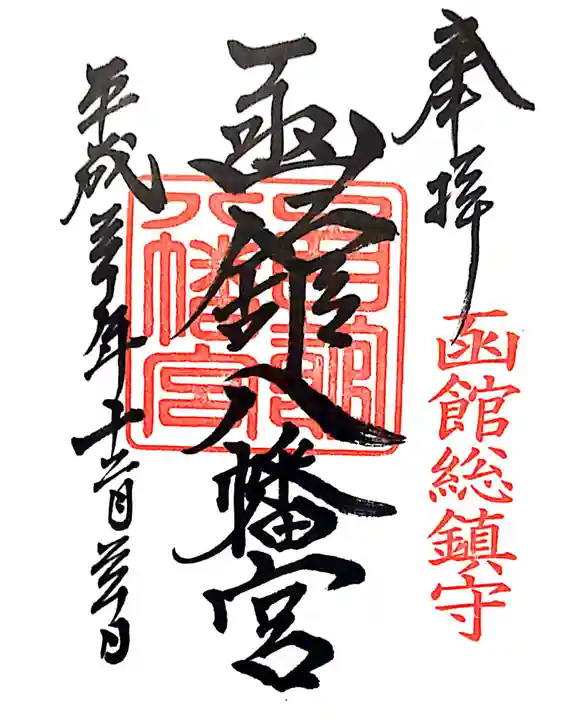 奉拝
函館総鎮守
函館八幡宮
函館
八幡宮
平成三十年十二月三十日